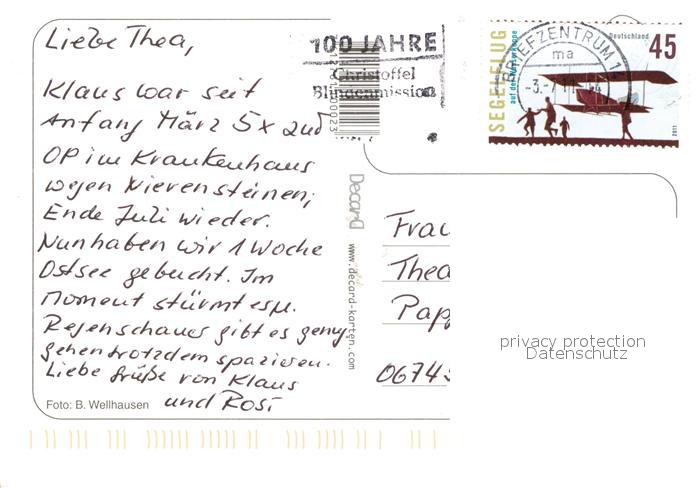 Liebe Thea,
Klaus war seit
Anfang März 5x zur
OP im Krankenhaus
wegen Nierensteinen;
Ende Juli wieder.
Nun haben wir 1 Woche
Ostsee gebucht. Im
Moment stürmt es u.
Regenschauer gibt es genug,
gehen trotzdem spazieren.
Liebe Grüße von Klaus
und Rosi
Foto: B. Wellhausen
Decard
www.decard-karten.com
100 JAHRE
Christoffel
Blindenmission
BRIEFZENTRUM 1
ma
SEGELFLUG
auf der Wasserkuppe
Deutschland
45
2011
Frau
Thea
Papp
06745
privacy protection
Datenschutz